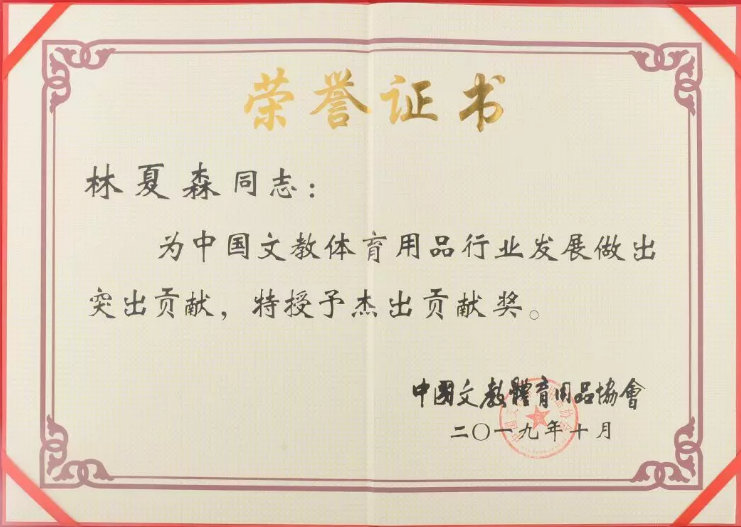 荣誉证书
林夏森同志：
为中国文教体育用品行业发展做出
突出贡献，特授予杰出贡献奖。
中国文教體育用品協會
二〇一九年十月